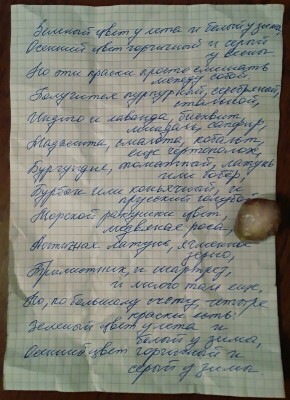 Зелёный цвет у лета и белый у зимы,
Осенний цвет горчичный и серый
у весны
Но эти краски просто смешать
между собой.
Получится пурпурный, серебряный,
стальной,
Индиго и лаванда, бисквит,
миндаль, сапфир,
Маджента, смальта, кобальт,
Бургундия, томатный, латунь
или бобёр,
Бурбон или коньячный, и
прусский голубой,
Морской ракушки цвет,
медвяная роса,
Античная латунь, ячменное
зерно,
и шартрез,
и много там еще,
Но, по большому счету, четыре
краски есть:
Зелёный цвет у лета и
белый у зимы,
Осенний цвет горчичный и
серый у зимы.